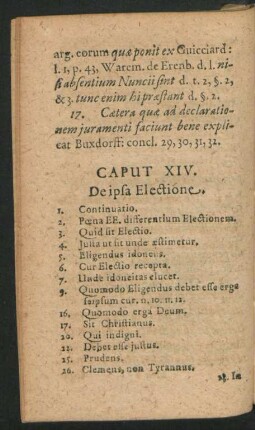 arg. eorum quæ ponit ex Guicciard:
l. 1, p. 43, Warem. de Erenb. d. l. ni-
si absentium Nuncii sint d. t. 2, §. 2,
& 3. tunc enim hi præstant d. §. 2.
17. Cætera quæ ad declaratio-
nem juramenti faciunt bene expli-
cat Buxdorff concl. 29, 30, 31, 32.
CAPUT XIV.
De ipsa Electione.
1. Continuatio.
2. Pœna EE. differentium Electionem.
3. Quid sit Electio.
4. Justa ut sit unde æstimetur.
5. Eligendus idoneus.
6. Cur Electio recepta.
7. Unde idoneitas elucet.
9. Quomodo Eligendus debet esse erga
seipsum cur. n. 10. 11. 12.
16. Quomodo erga Deum.
17. Sit Christianus.
20. Qui indigni.
22. Debet esse justus.
25. Prudens.
26. Clemens, non Tyrannus.